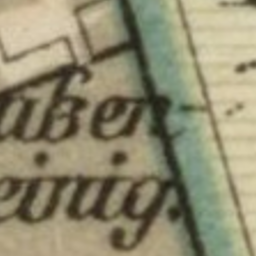 aßen
einig.